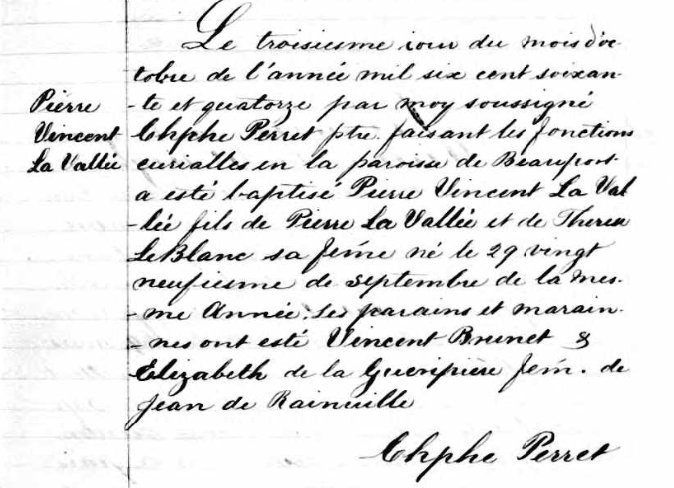 Le troisiesme iour du mois d'oc-
tobre de l'année mil six cent soixan-
Pierre
Vincent
La Vallée
-te et quatorze par moy soussigné
Chphe Perret ptre. faisant les fonctions
curialles en la paroisse de Beauport
a esté baptisé Pierre Vincent La Val
-lée fils de Pierre La Vallée et de Therese
LeBlanc sa fem̃e né le 29 vingt
neufiesme de septembre de la mes-
-me Année. Les parains et marain-
-nes ont esté Vincent Brunet &
Elizabeth de la Gueripiere fem̃. de
Jean de Rainuille
Chphe Perret